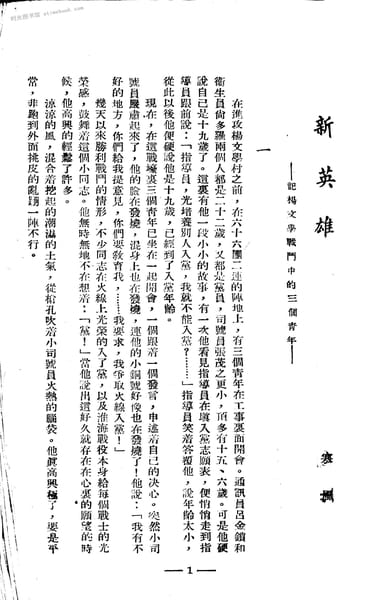 时光图书馆 etimebook.com
新英雄
——記楊文學戰鬥中的三個青年——
一
在進攻楊文學村之前，在六十六團二連的陣地上，有三個青年在工事裏面開會。通訊員呂金鎖和
衛生員尙多羅兩個人都是二十二歲，又都是黨員，司號員張茂之更小，頂多有十五、六歲。可是他硬
說自己是十九歲了。這裏有他一段小小的故事，有一次他看見指導員在填入黨志願表，便悄悄走到指
導員跟前說：「指導員，光培養別人入黨，我就不能入黨？……」指導員笑着答覆他，說年齡太小，
從此以後他便硬說他是十九歲，已經到了入黨年齡。
現在，在這戰壕裏三個青年已坐在一起開會，一個跟着一個發言，申述着自己的決心。突然小司
號員嚴肅起來了，他的臉在發燒，混身上也在發燒，連他的小銅號好像也在發燒了！他說：「我有不
好的地方，你們給我提意見，你們要敎育我，……我要求，我爭取火線入黨！」
幾天以來勝利戰鬥的情形，不少同志在火線上光榮的入了黨，以及淮海戰役本身給每個戰士的光
榮感，鼓舞着這個小同志。他無時無地不在想着：「黨！」當他說出這好久就存在在心裏的願望的時
候，他高興的輕鬆了許多。
涼涼的風，混合着挖起的潮濕的土氣，從槍孔吹着小司號員火熱的腦袋。他眞高興極了，要是平
常，非跑到外面挑皮的亂蹦一陣不行。
—1—